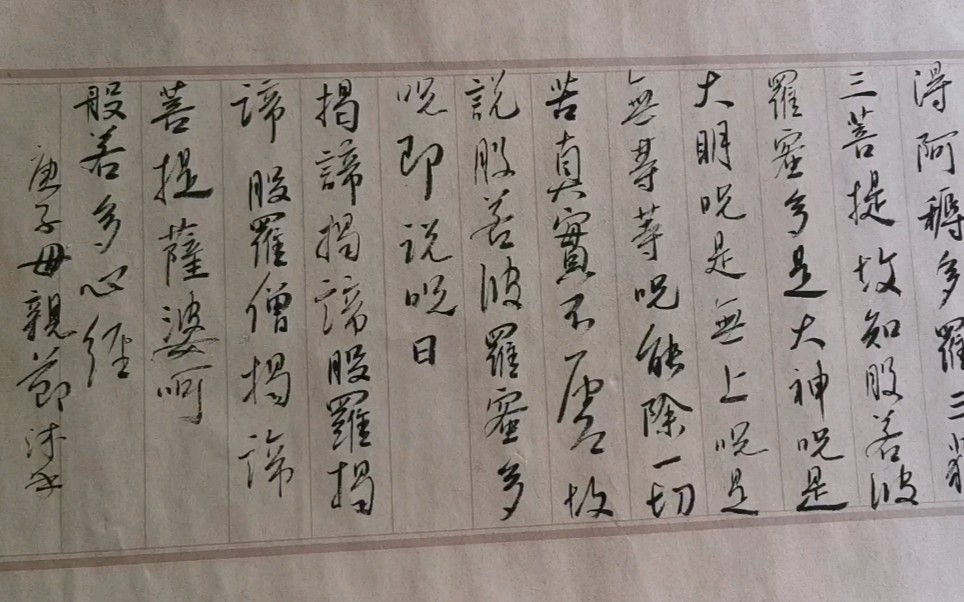 得阿耨多羅三藐
三菩提故知般若波
羅蜜多是大神呪是
大明呪是無上呪是
無等等呪能除一切
苦真實不虛故
說般若波羅蜜多
呪即说呪曰
揭諦揭諦般羅揭
諦般羅僧揭諦
菩提薩婆呵
般若多心經
庚子母親節